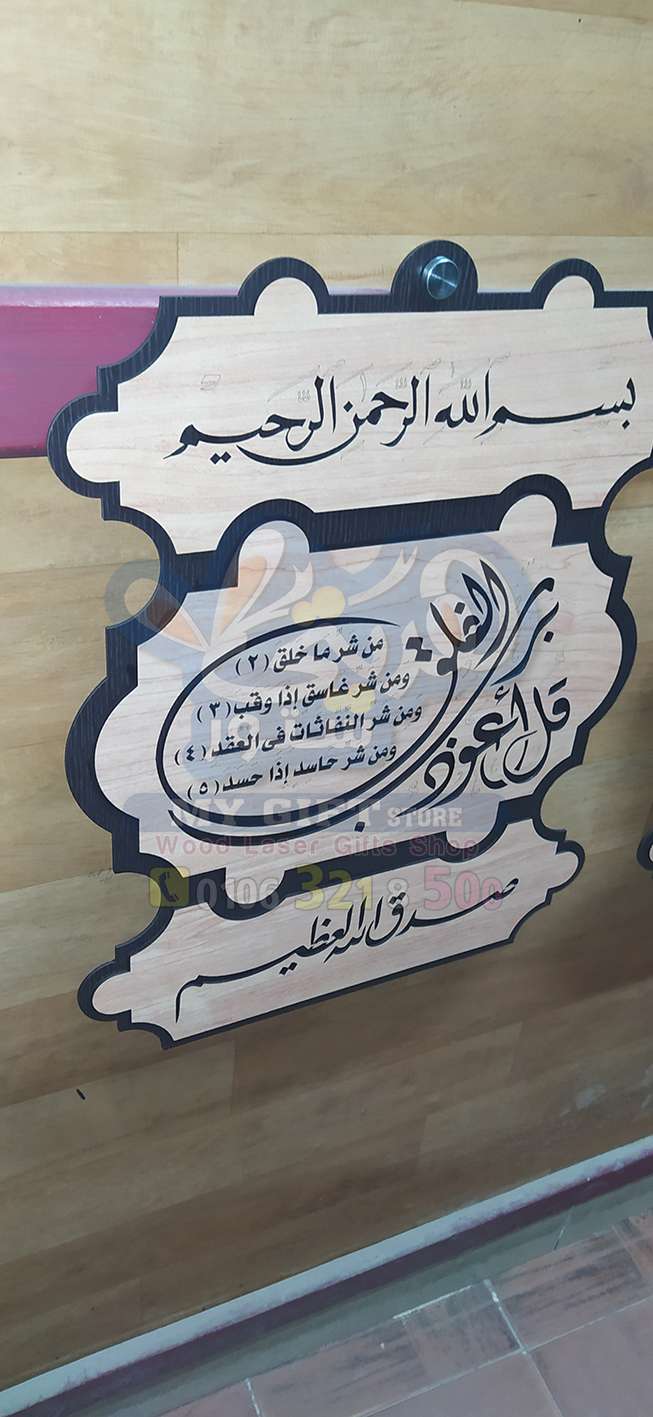 بسم الله الرحمن الرحيم
قل أعوذ برب الفلق
من شر ما خلق (٢)
ومن شر غاسق إذا وقب (٣)
ومن شر النفاثات في العقد (٤)
ومن شر حاسد إذا حسد (٥)
MY GIFT STORE
Wood Laser Gifts Shop
0106 321 8 500
صدق الله العظيم